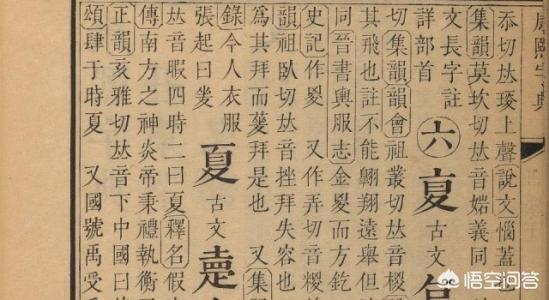 康熙字典
忝切𠀤琰上聲說文惱蓋
集韻莫坎切𠀤音㜣義同
文長字註
詳部首
六 㚇 古文
切集韻韻會祖叢切𠀤音椶
其飛也註不能翺翔遠舉但
同晉書輿服志金㚇而方釳
史記作㚇 又作弄切音糉
韻祖臥切𠀤音挫拜失容也
爲其拜而蓌拜是也 又集
錄今人衣服
張起曰㚇
夏 古文
𠀤音暇四時二曰夏釋名假
傳南方之神炎帝秉禮執衡
正韻亥雅切𠀤音下中國曰
頌肆于時夏 又國號禹受
悟空问答